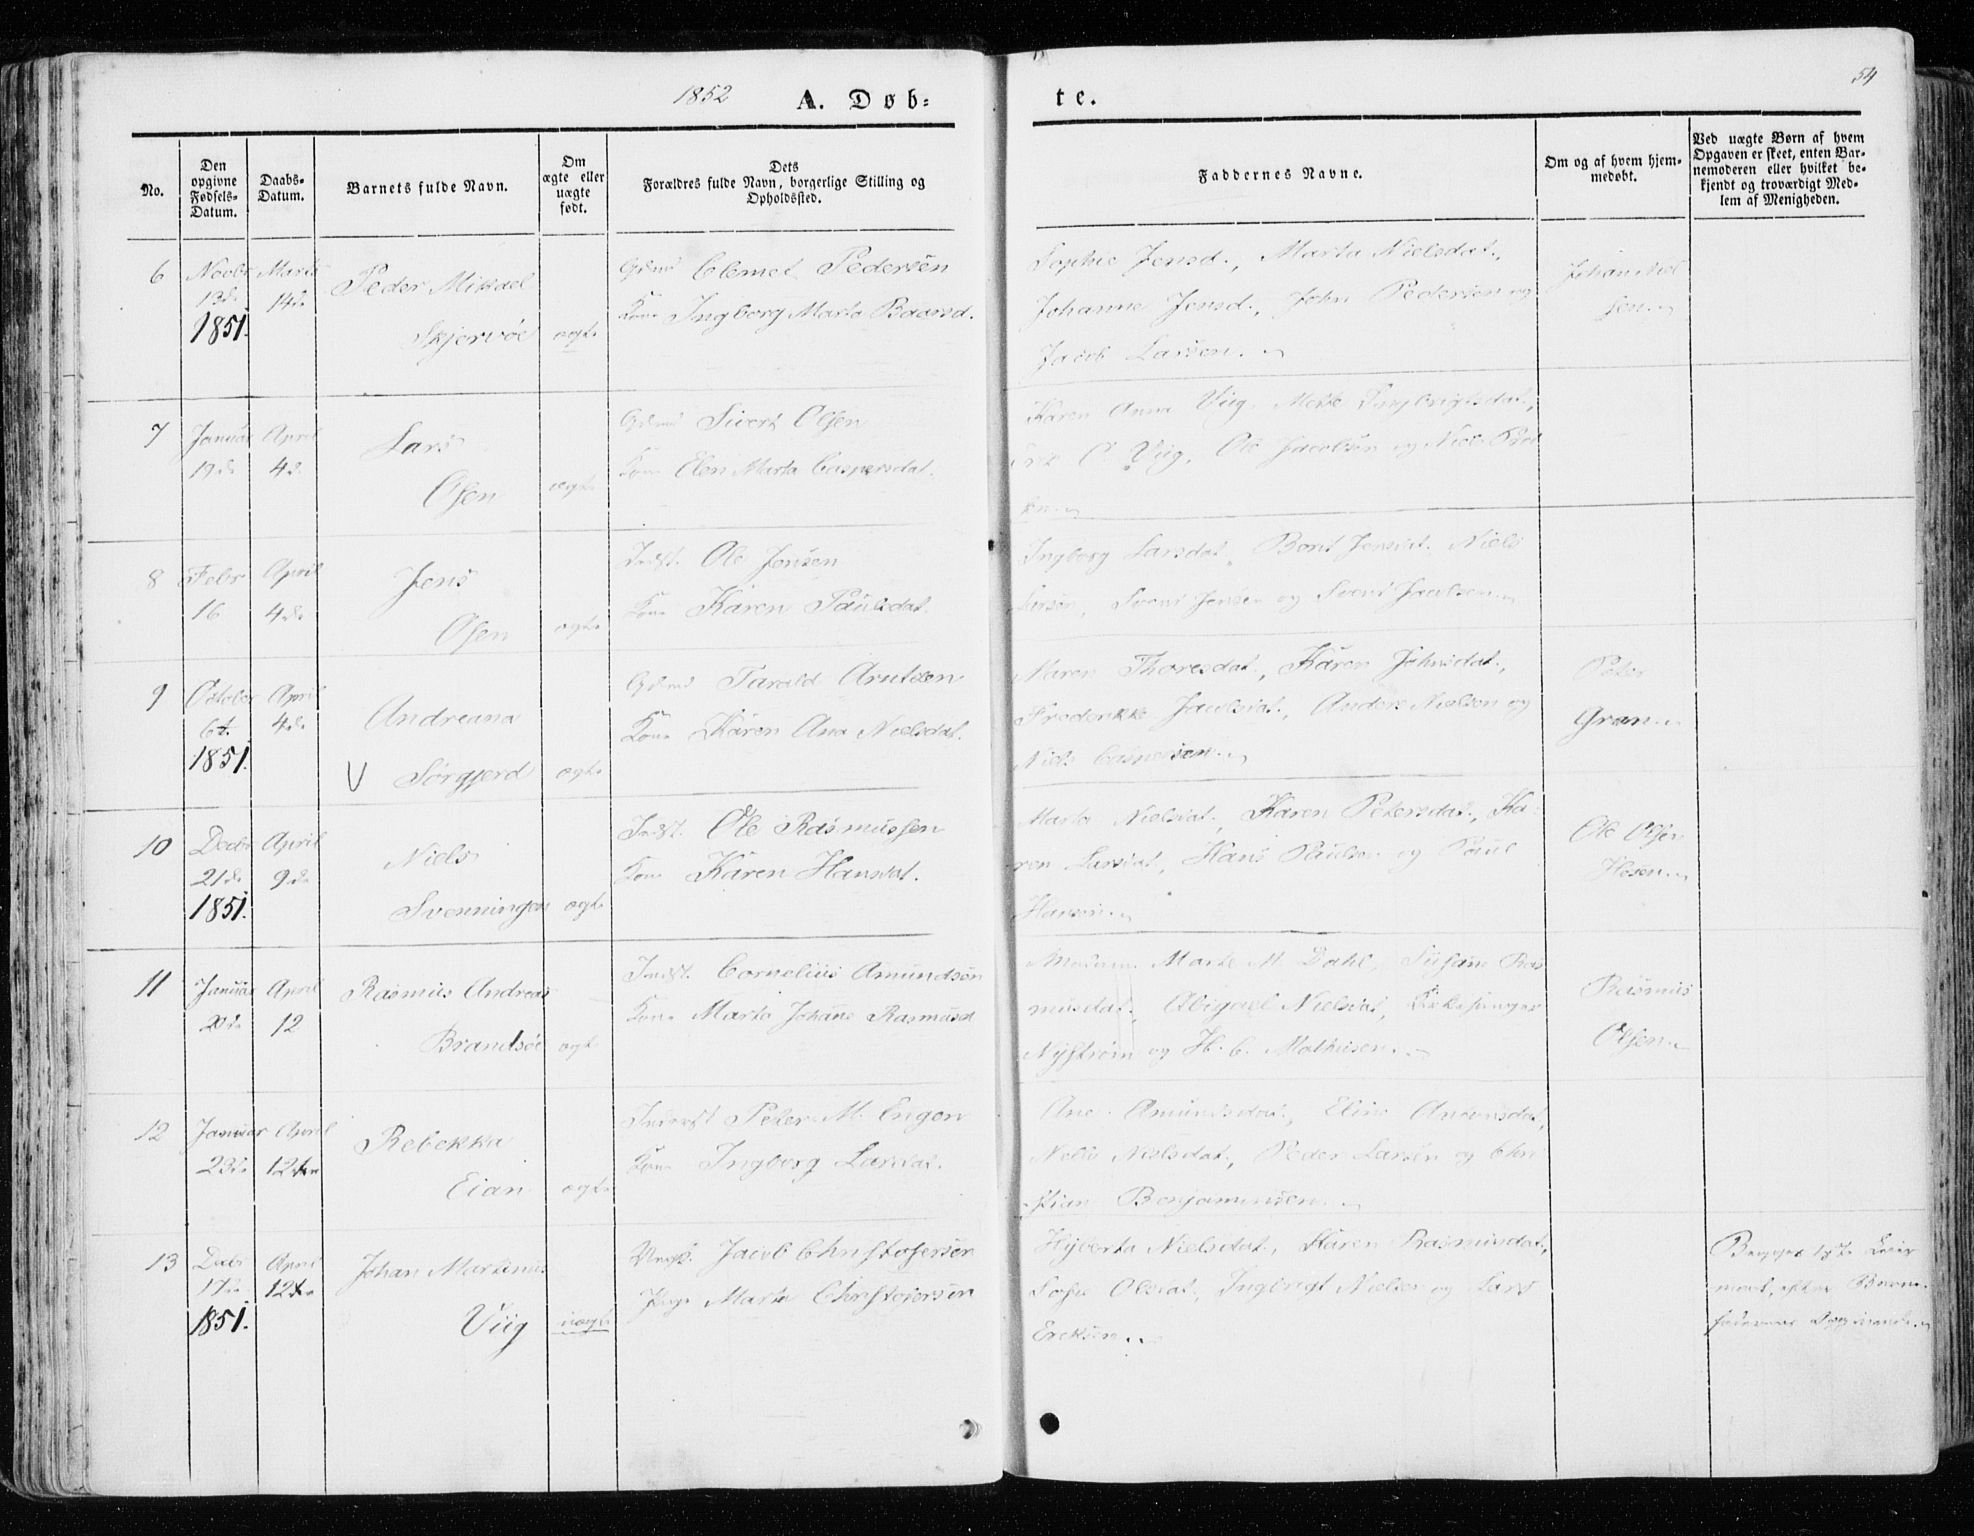 1852
A. Døb-
te.
54
No.
Den opgivne Fødsels-Datum.
Daabs-Datum.
Barnets fulde Navn.
Om ægte eller uægte født.
Dets Forældres fulde Navn, borgerlige Stilling og Opholdssted.
Faddernes Navne.
Om og af hvem hjem-medøbt.
Ved uægte Børn af hvem Opgaven er skeet, enten Bar-nemoderen eller hvilket be-kjendt og troværdigt Med-lem af Menigheden.
6 Novbr 13de 1851.
Marts 14de
Peder Mikael
Skjervøe
ægte
Gdmd Clemet Pedersen
Kone Ingborg Marta Baarsd.
Sophie Jensd., Marta Nielsdat.,
Johanne Jensd., John Pedersen og
Jacob Larsen.
Johan Niel
sen
7 Januar 19de
April 4de
Lars
Osen
ægte
Gdmd Sivert Olsen
Kone Elen Marta Caspersdat.
Karen Anna Viig, Mette Ingbrigtsdat.,
C. Viig, Ole Jacobsen og Niels
8 Febr 16
April 4de
Jens
Osen
ægte
Indst. Ole Jensen
Kone Karen Paulsdat.
Ingborg Larsdat., Berit Jensdat. Niels
Larsen, Svend Jensen og Svend Jacobsen
9 October 6te 1851.
April 4de
Andreana
V Sørgjerd
ægte
Gdmd Tarald Arntsen
Kone Karen Ana Nielsdat.
Maren Thoresdat., Karen Johnsdat.,
Frederikke Jacobsdat., Anders Nielsen og
Niels Caspersen
Peter
Gran
10 Decbr 21de 1851.
April 9de
Niels
Svenningen
ægte
Indst. Ole Rasmussen
Kone Karen Hansdat.
Marta Nielsdat., Karen Petersdat., Ka-
ren Larsdat., Hans Paulsen og Poul
Hansen
Ole Olsen
Hosen
11 Januar 20de
April 12
Rasmus Andreas
Brandsøe
ægte
Indst. Cornelius Amundsen
Kone Marta Johane Rasmusd
Madam Marte M. Dahl, Susane Ras
musdat., Abigael Nielsdat., Kirkesanger
Nystrøm og H. C. Mathisen
Rasmus
Olsen
12 Januar 23de
April 12te
Rebekka
Eian
ægte
Inderst Peter M. Engen
Kone Ingborg Larsdat.
Ane Amundsdat., Elina Antonsdat.,
Nielsdat., Peder Larsen og Chri
stian Benjaminsen
13 Decbr 17de 1851.
April 12te
Johan Martinus
Viig
uægte
Ungk. Jacob Christofersen
Pige Marta Christofersen
Hyberta Nielsdat., Karen Rasmusdat.,
Sofie Olsdat., Ingbrigt Nielsen og Lars
Ericksen
Begges 1ste Leier
maal, efter Barne-
faderens Opgivende